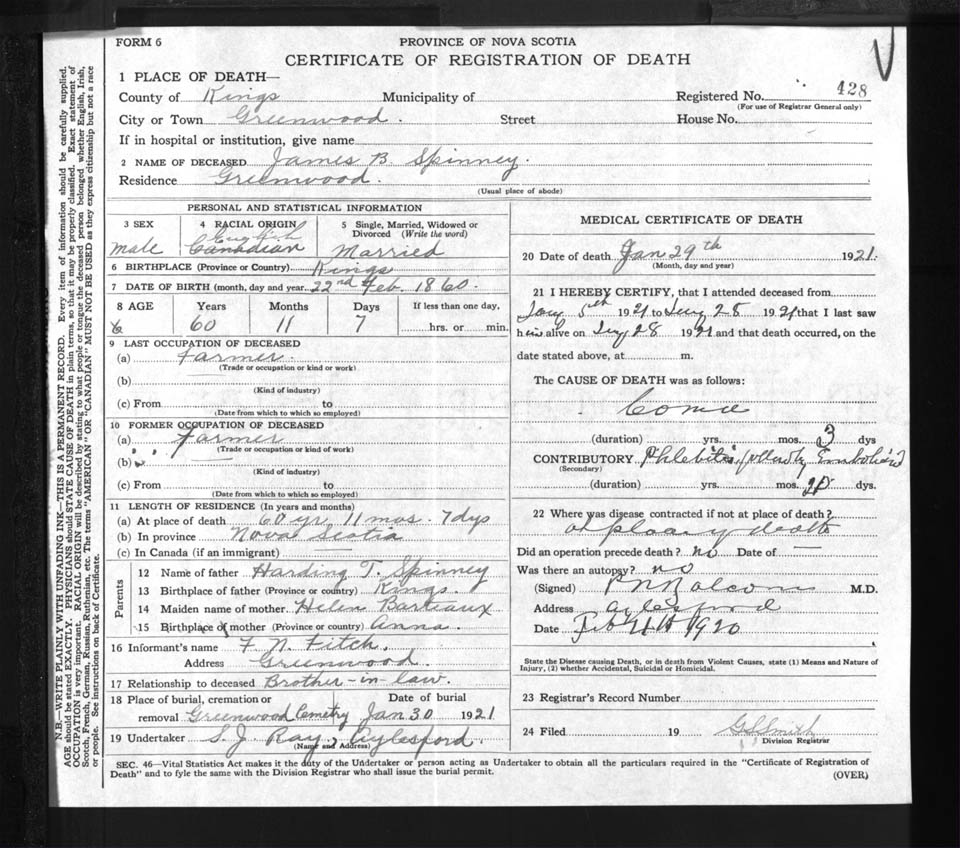 FORM 6
PROVINCE OF NOVA SCOTIA
CERTIFICATE OF REGISTRATION OF DEATH
1 PLACE OF DEATH—
County of Kings Municipality of Registered No. 428
(For use of Registrar General only)
City or Town Greenwood. Street House No.
If in hospital or institution, give name
2 NAME OF DECEASED James B. Spinney.
Residence Greenwood.
(Usual place of abode)
PERSONAL AND STATISTICAL INFORMATION
3 SEX 4 RACIAL ORIGIN 5 Single, Married, Widowed or
Divorced (Write the word)
English
male Canadian Married
6 BIRTHPLACE (Province or Country) Kings
7 DATE OF BIRTH (month, day and year) 22nd Feb. 1860.
8 AGE Years Months Days If less than one day,
60 11 7 hrs. or min.
9 LAST OCCUPATION OF DECEASED
(a) Farmer.
(Trade or occupation or kind or work)
(b)
(Kind of industry)
(c) From to
(Date from which to which so employed)
10 FORMER OCCUPATION OF DECEASED
(a) Farmer
(Trade or occupation or kind of work)
(b)
(Kind of industry)
(c) From to
(Date from which to which so employed)
11 LENGTH OF RESIDENCE (In years and months)
(a) At place of death 60 yr. 11 mos. 7 dys
(b) In province Nova Scotia
(c) In Canada (if an immigrant) —
Parents
12 Name of father Harding T. Spinney
13 Birthplace of father (Province or country) Kings.
14 Maiden name of mother Helen Barteaux
15 Birthplace of mother (Province or country) Anna.
16 Informant's name F. N. Fitch.
Address Greenwood.
17 Relationship to deceased Brother-in-law.
18 Place of burial, cremation or Date of burial
removal Greenwood Cemetry Jan 30 1921
19 Undertaker S. J. Ray, Aylesford.
(Name and Address)
MEDICAL CERTIFICATE OF DEATH
20 Date of death Jan 29th 1921.
(Month, day and year)
21 I HEREBY CERTIFY, that I attended deceased from
5th 1921 to 28 1921 that I last saw
him alive on 28 1921 and that death occurred, on the
date stated above, at m.
The CAUSE OF DEATH was as follows:
(duration) yrs. mos. 3 dys
CONTRIBUTORY Phlebitis, Embolism
(Secondary)
(duration) yrs. mos. dys.
22 Where was disease contracted if not at place of death?
at place of death
Did an operation precede death? no Date of —
Was there an autopsy? no
(Signed) M.D.
Address Aylesford
Date Feb 4th 1920
State the Disease causing Death, or in death from Violent Causes, state (1) Means and Nature of
Injury, (2) whether Accidental, Suicidal or Homicidal.
23 Registrar's Record Number
24 Filed 19 Smith
Division Registrar
SEC. 46—Vital Statistics Act makes it the duty of the Undertaker or person acting as Undertaker to obtain all the particulars required in the "Certificate of Registration of
Death" and to fyle the same with the Division Registrar who shall issue the burial permit. (OVER)
N.B.—WRITE PLAINLY WITH UNFADING INK—THIS IS A PERMANENT RECORD. Every item of information should be carefully supplied.
AGE should be stated EXACTLY. PHYSICIANS should STATE CAUSE OF DEATH in plain terms, so that it may be properly classified. Exact statement of
OCCUPATION is very important. RACIAL ORIGIN will be described by stating to what people or tongue the deceased person belonged whether English, Irish,
Scotch, French, German, Russian, Ruthenian, etc. The terms "AMERICAN" OR "CANADIAN" MUST NOT BE USED as they express citizenship but not a race
or people. See instructions on back of Certificate.